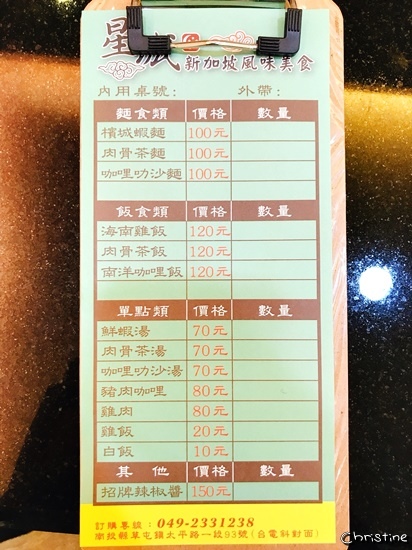 星
新加坡風味美食
內用桌號: 外帶:
麵食類 價格 數量
檳城蝦麵 100元
肉骨茶麵 100元
咖哩叻沙麵 100元
飯食類 價格 數量
海南雞飯 120元
肉骨茶飯 120元
南洋咖哩飯 120元
單點類 價格 數量
鮮蝦湯 70元
肉骨茶湯 70元
咖哩叻沙湯 70元
豬肉咖哩 80元
雞肉 80元
雞飯 20元
白飯 10元
其他 價格 數量
招牌辣椒醬 150元
訂購專線:049-2331238
南投縣草屯鎮太平路一段93號(台電斜對面)
Christine